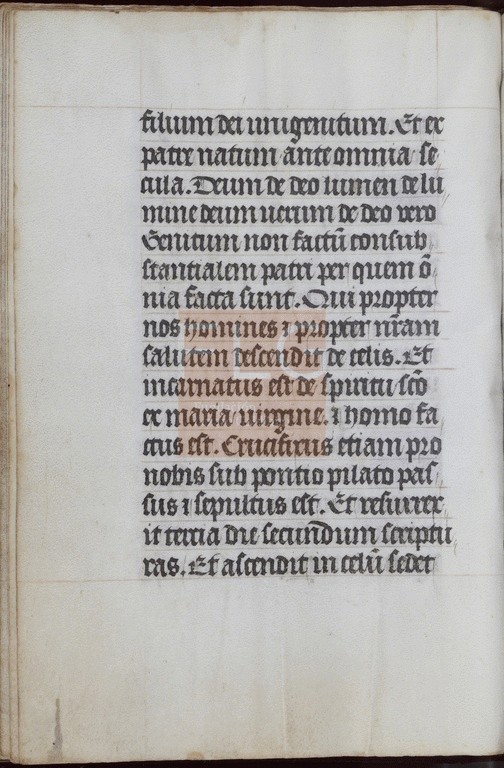 filium dei unigenitum. Et ex
patre natum ante omnia se
cula. Deum de deo lumen de lu
mine deum uerum de deo vero
Genitum non factū consub
stantialem patri per quem ō
nia facta sunt. Qui propter
nos homines ⁊ propter nr̄am
salutem descendit de celis. Et
incarnatus est de spiritu sc̄o
ex maria uirgine. ⁊ homo fa
ctus est. Crucifixus etiam pro
nobis sub pontio pilato pas
sus ⁊ sepultus est. Et resurrex
it tercia die secundum scriptu
ras. Et ascendit in celū sedet